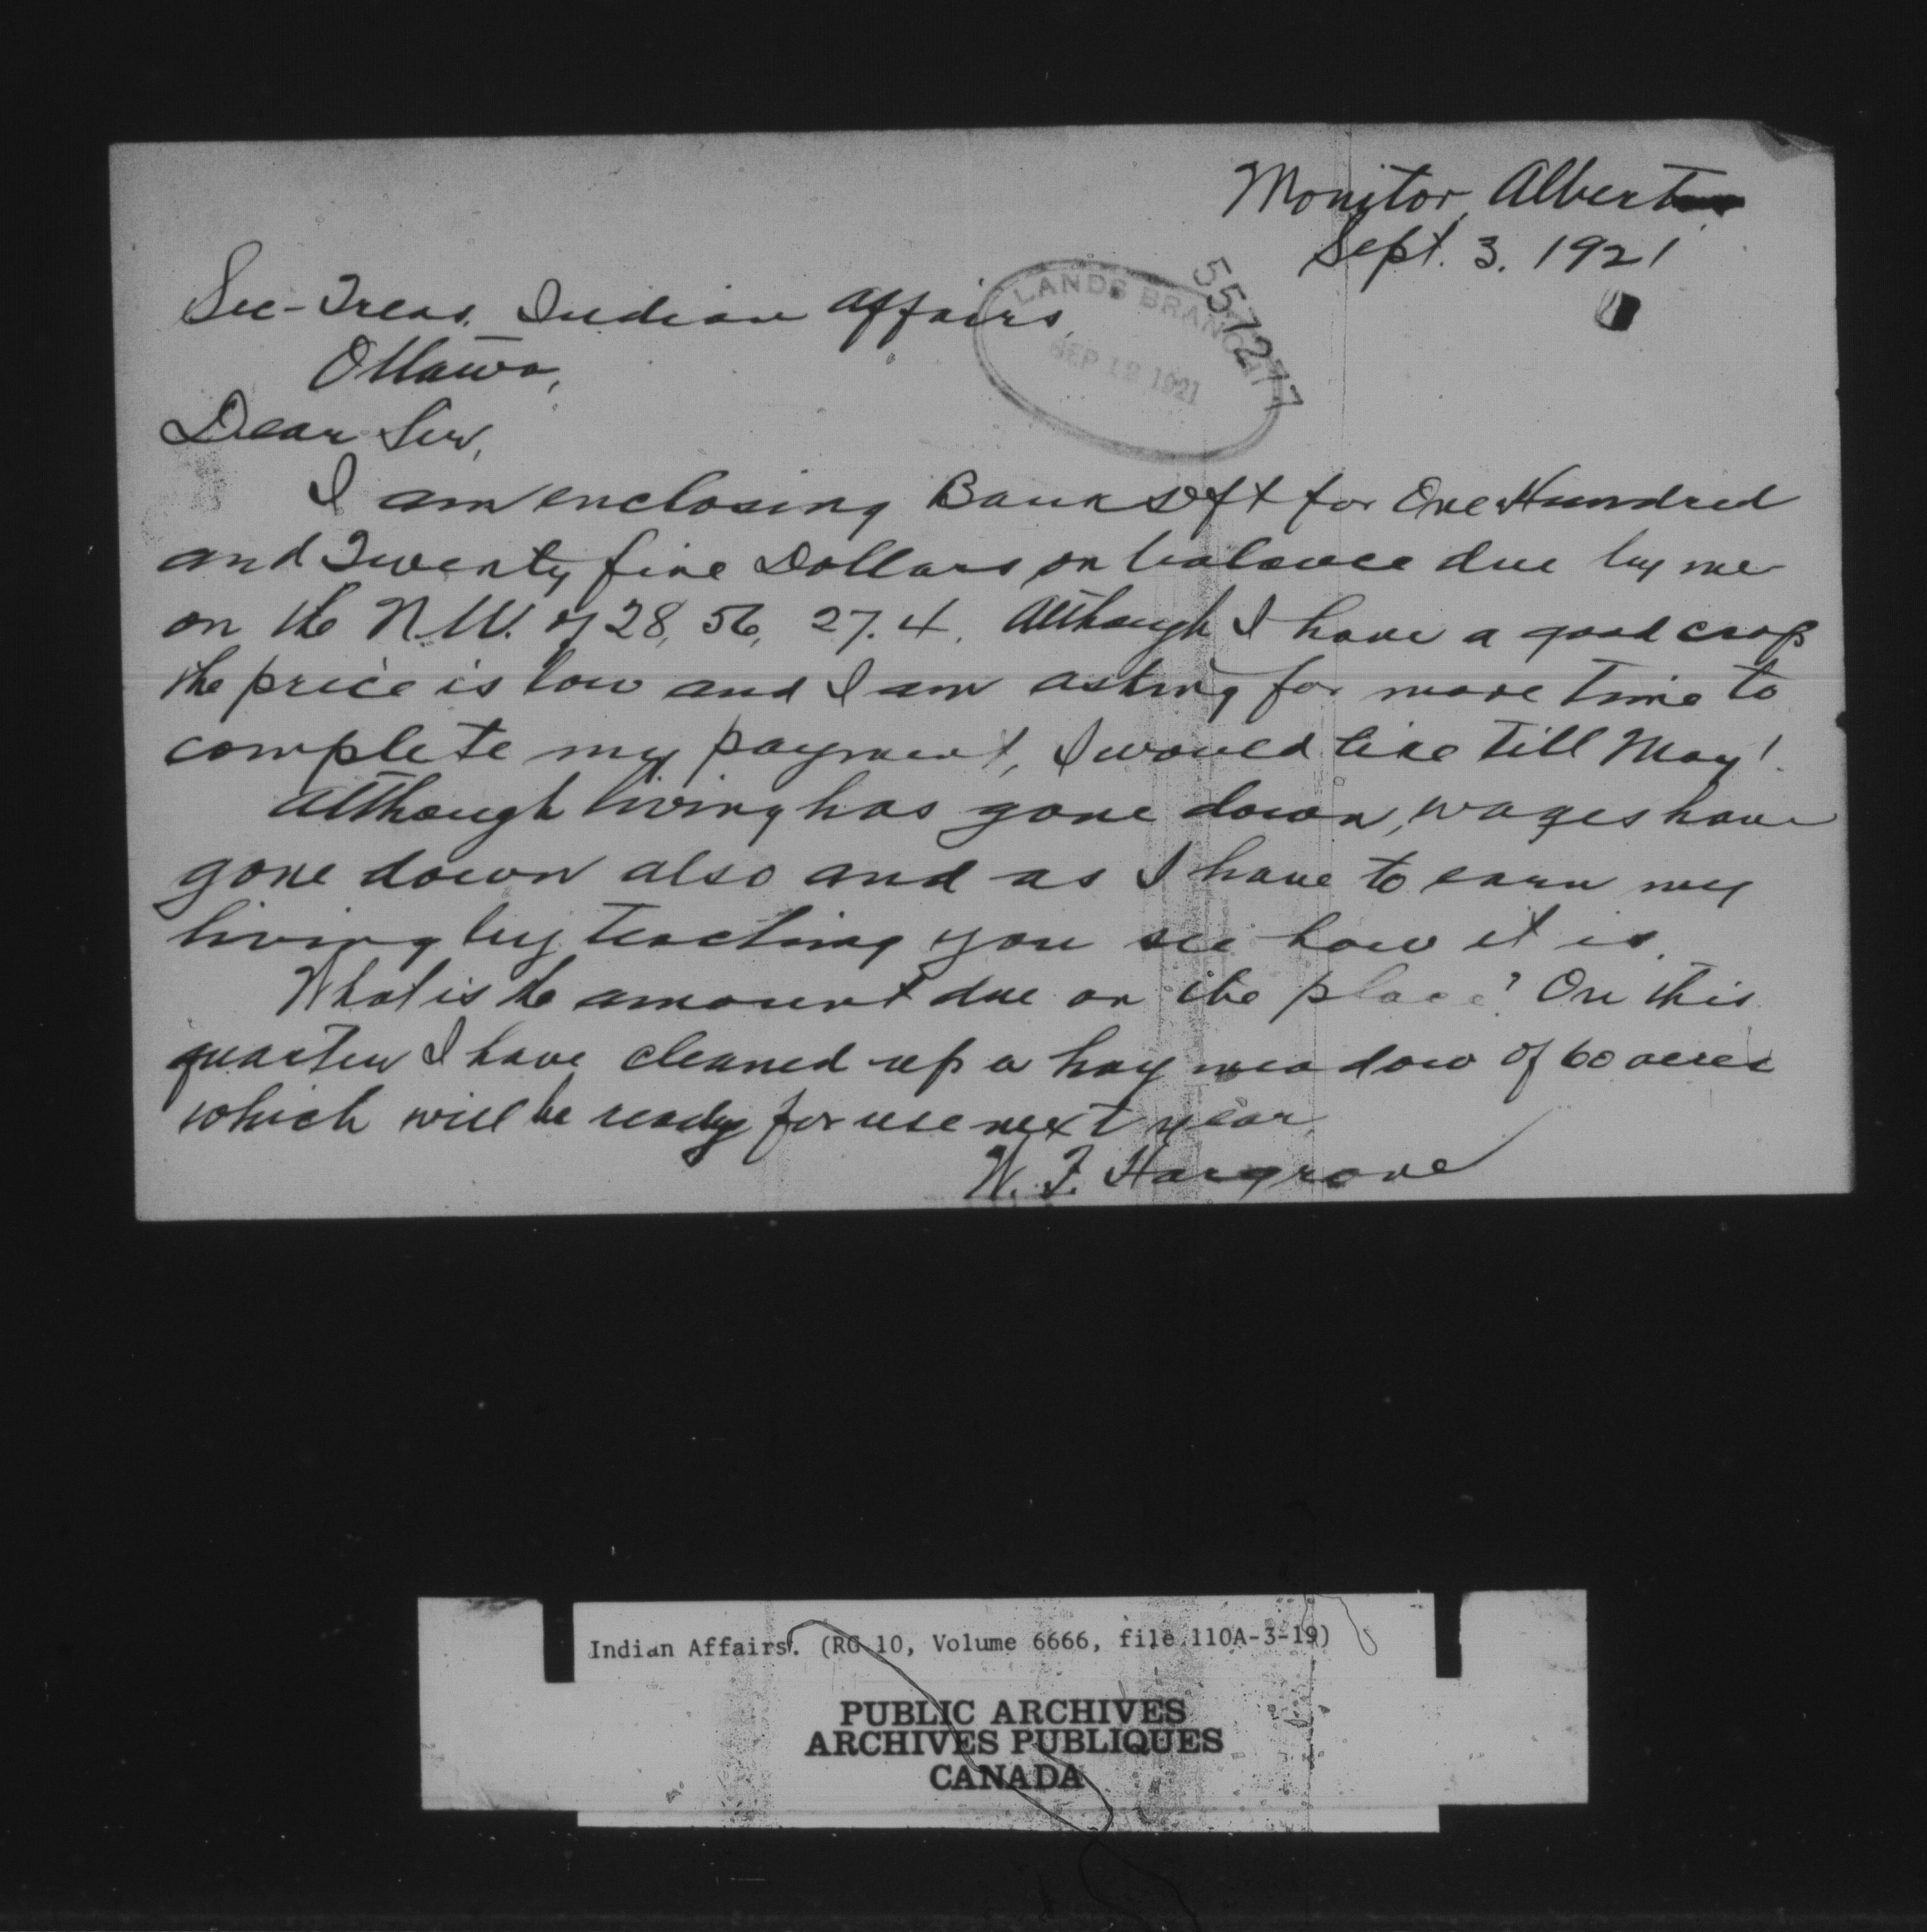 Monitor, Alberta
Sept. 3. 1921
Sec-Treas. Indian Affairs,
Ottawa,
LANDS BRANCH
SEP 12 1921
557277
Dear Sir,
I am enclosing Bank Dft for One Hundred
and Twenty five Dollars on balance due by me
on the N.W. of 28, 56, 27. 4. Although I have a good crop
the price is low and I am asking for more time to
complete my payment, I would like till May 1.
Although living has gone down, wages have
gone down also and as I have to earn my
living by teaching you see how it is.
What is the amount due on the place? On this
quarter I have cleaned up a hay meadow of 60 acres
which will be ready for use next year
W. F. Hargrove
Indian Affairs. (RG 10, Volume 6666, file 110A-3-19)
PUBLIC ARCHIVES
ARCHIVES PUBLIQUES
CANADA